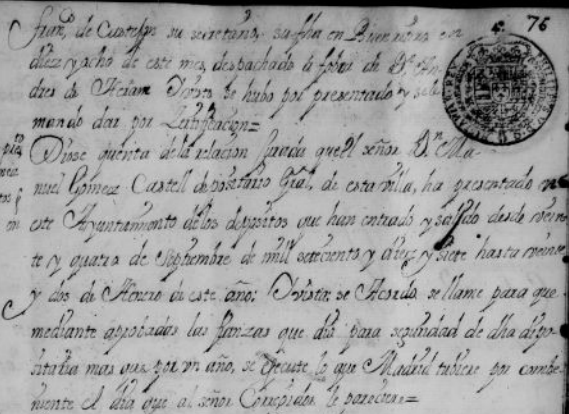 76
Fran.co de Castejon su secretario, su fha en Buen retiro en
diez y ocho de este mes, despachada a fabor de D.n An-
dres de Y vista se hubo por presentado y se le
mando dar por Zertificacion=
Diose quenta de la relacion jurada que el señor D.n Ma-
nuel Gomez Castell depositario Gral, de esta villa, ha presentado en
este Ayuntamiento de los depositos que han entrado y salido desde vein-
te y quatro de Septiembre de mill setecientos y diez y siete hasta veinte
y dos de Henero de este año: Y vista; se Acordo se llame para que
mediante aprobadas las fianzas que dio para seguridad de dha depo-
sitaria mas que por vn año, se execute lo que Madrid tubiere por combe-
niente el dia que al señor Corregidor le pareciere=